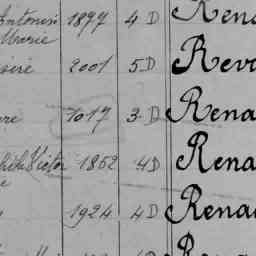 Antonin 1897 4 D Rena
Marie
2001 5 D Reve
re 1017 3 D Rena
Victor 1862 4 D Rena
e
1924 4 D Rena